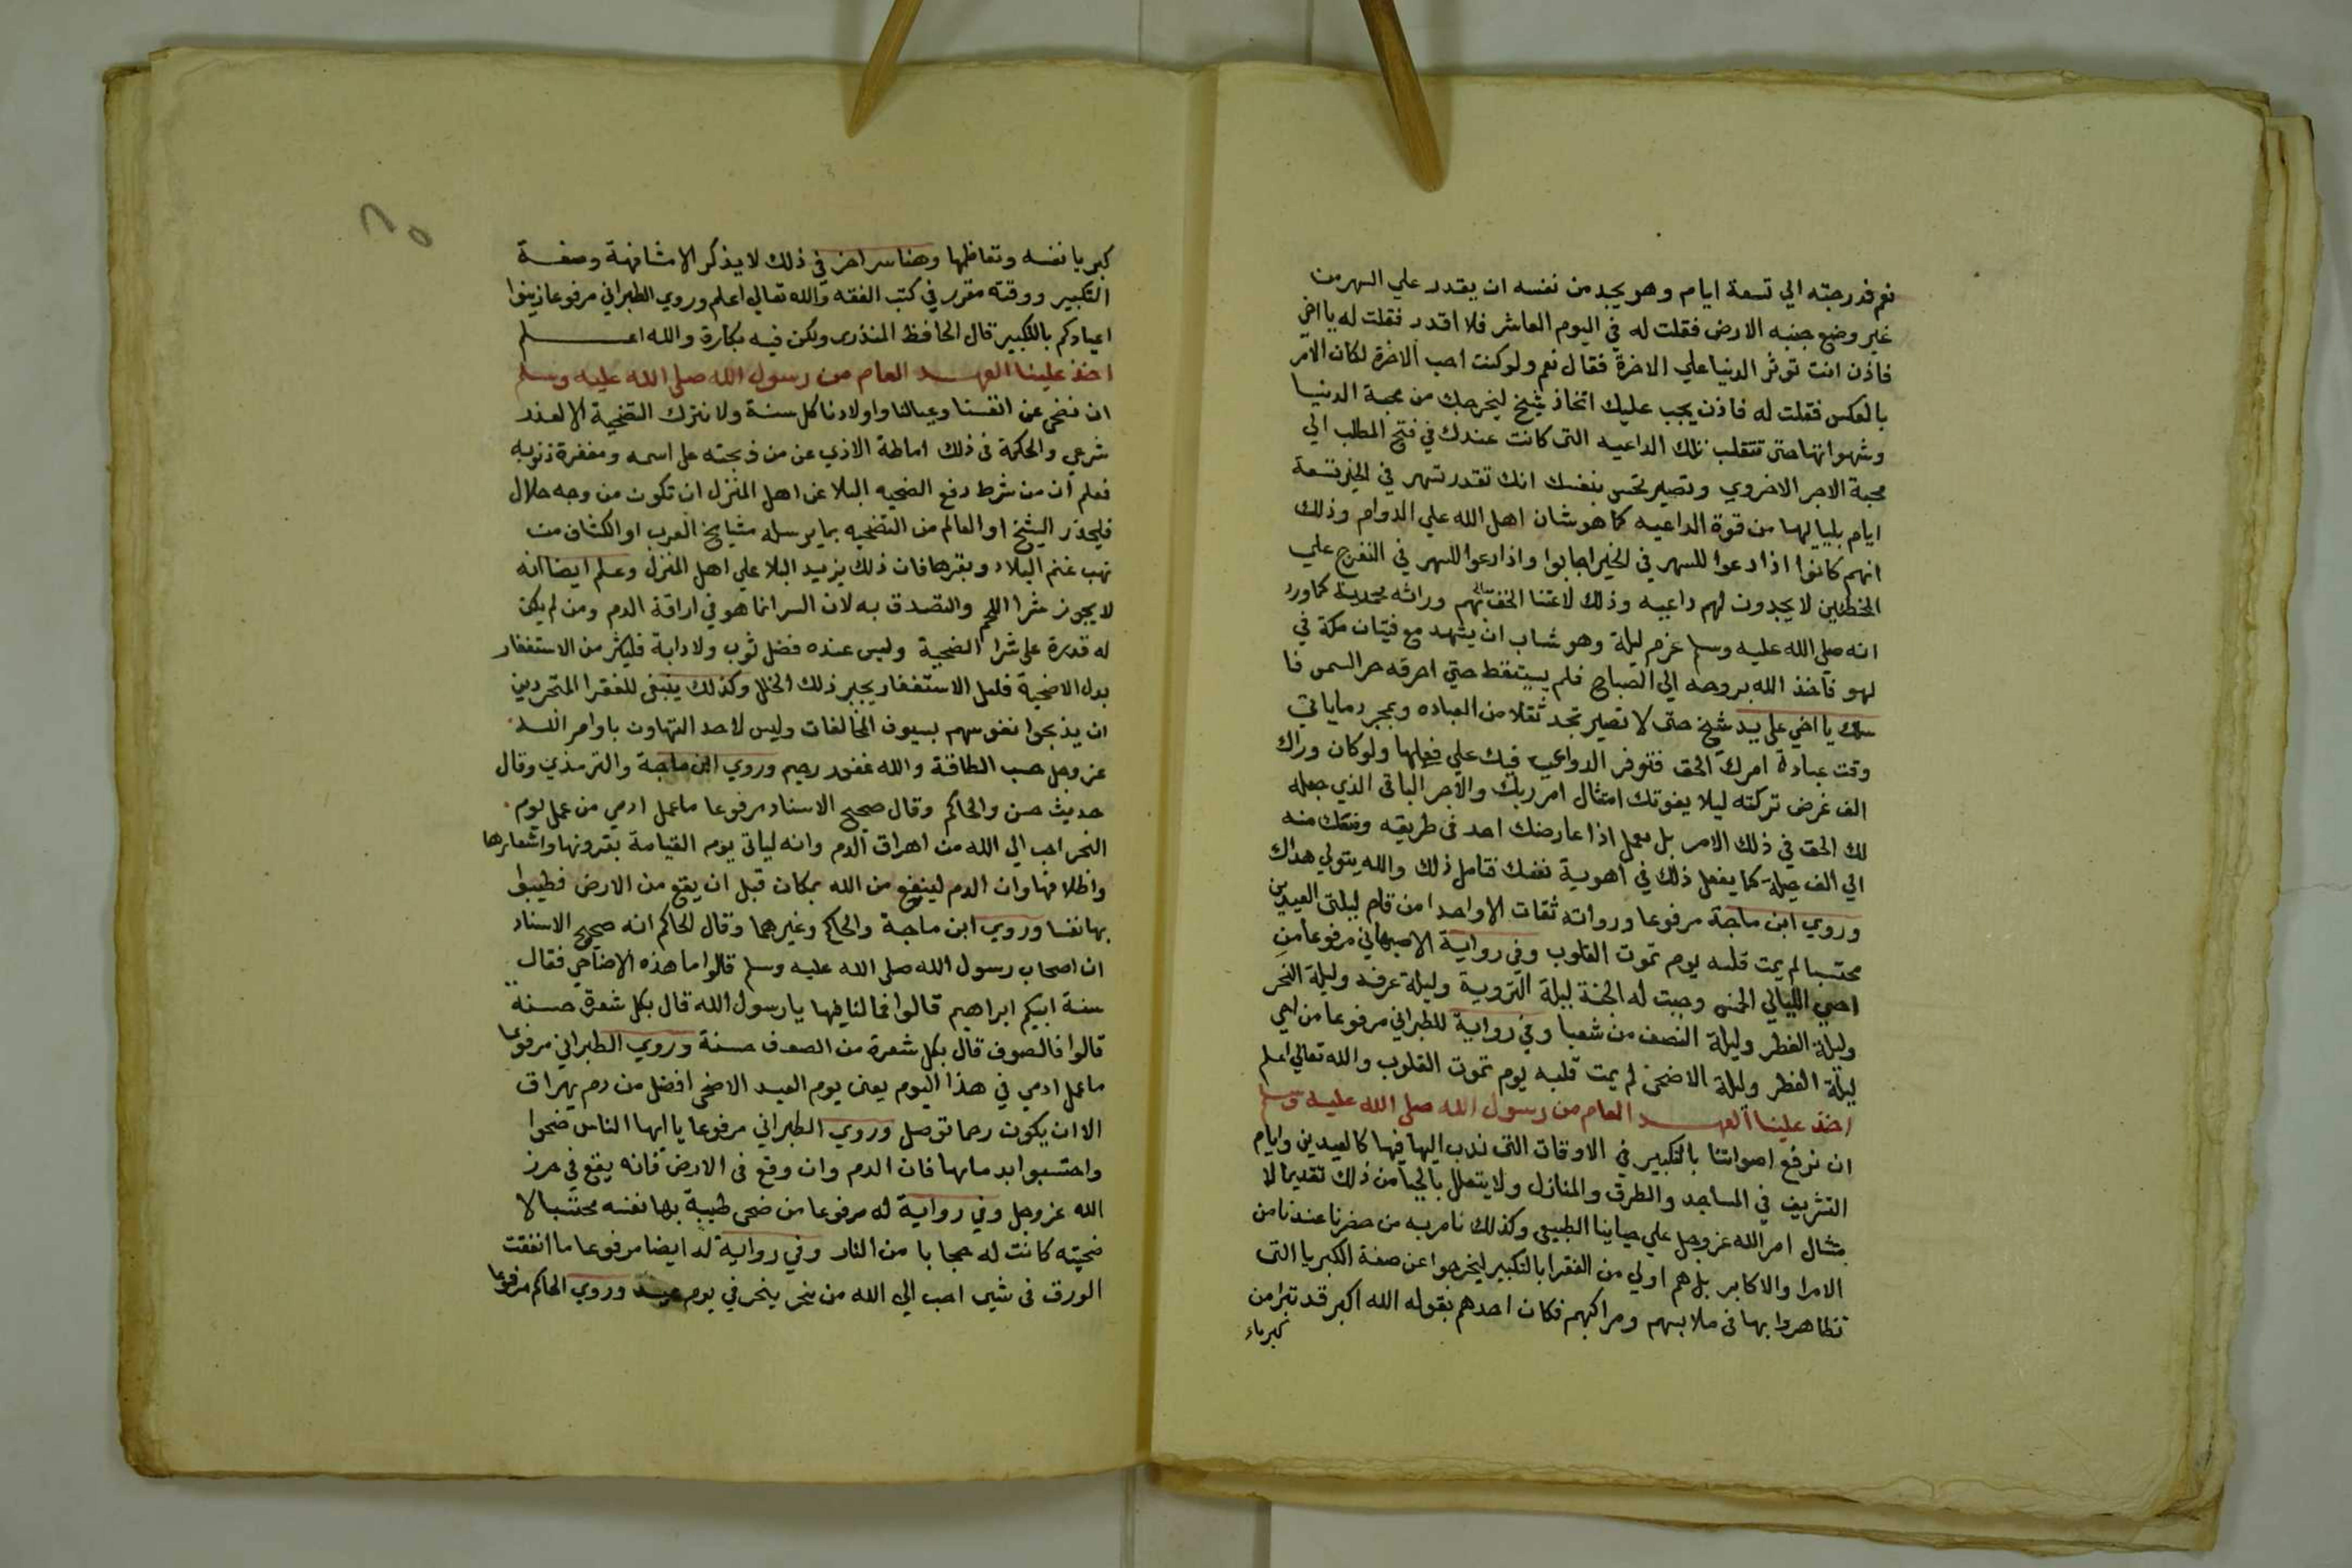 نعم فدرجته الي تسعة ايام وهو يجد من نفسه ان يقدر علي السهر من
غير وضع جنبه الارض فقلت له في اليوم العاشر فلا اقدر فقلت له يا اخي
فاذن انت توثر الدنيا علي الاخرة فقال نعم ولو كنت احب الاخرة لكان الامر
بالعكس فقلت له فاذن يجب عليك اتخاذ شيخ ليخرجك من محبة الدنيا
وشهواتها حتى تنقلب تلك الداعيه التى كانت عندك في فتح المطلب الي
محبة الاجر الاخروي وتصير تحس بنفسك انك تقدر تسهر في الخير تسعة
ايام بلياليها من قوة الداعيه كما هو شان اهل الله علي الدوام وذلك
انهم كانوا اذا دعوا للسهر في الخير اجابوا واذا دعوا للسهر في التفرج علي
المخبطين لا يجدون لهم داعيه وذلك لاعتنا الحق تعالى بهم وراثه محمدية كما ورد
انه صلي الله عليه وسلم عزم ليلة وهو شاب ان يشهد مع فتيان مكة في
لهو فاخذ الله بروحه الي الصباح فلم يستيقظ حتي احرقه حر الشمس فا
سلك يا اخي علي يد شيخ حتى لا تصير تجد ثقلا من العباده وبمجرد ما ياتي
وقت عبادة امرك الحق فتتوفر الدواعي فيك علي فعلها ولو كان وراك
الف غرض تركته ليلا يفوتك امتثال امر ربك والاجر الباقى الذي جعله
لك الحق في ذلك الامر بل تعمل اذا عارضك احد فى طريقه ومنعك منه
الي الف حيلة كما يفعل ذلك في اهوية نفسك فتامل ذلك والله يتولي هداك
وروي ابن ماجة مرفوعا ورواته ثقات الا واحدا من قام ليلتى العيدين
محتسبا لم يمت قلبه يوم تموت القلوب وفي رواية الاصبهاني مرفوعا من
احيي الليالي الخمس وجبت له الجنة ليلة التروية وليلة عرفه وليلة النحر
وليلة الفطر وليلة النصف من شعبا وفي رواية للطبراني مرفوعا من احي
ليلة الفطر وليلة الاضحى لم يمت قلبه يوم تموت القلوب والله تعالي اعلم
اخذ علينا العهد العام من رسول الله صلى الله عليه وسلم
ان نرفع اصواتنا بالتكبير في الاوقات التى ندب اليها فيها كالعيدين وايام
التشريق في المساجد والطرق والمنازل ولا يتعلل بالحيا من ذلك تقديما لا
متثال امر الله عز وجل علي حياينا الطبيعى وكذلك نامر به من حضرنا عندنا من
الامرا والاكابر بل هم اولي من الفقرا بالتكبير ليخرجوا عن صفة الكبريا التى
تظاهروا بها فى ملابسهم ومراكبهم فكان احدهم بقوله الله اكبر قد تبرا من
كبرياء
كبريا نفسه وتعاظمها وهنا سر اخر في ذلك لا يذكر الا مشافهة وصفة
التكبير ووقته مقرر في كتب الفقه والله تعالي اعلم وروي الطبراني مرفوعا زينوا
اعيادكم بالتكبير قال الحافظ المنذرى ولكن فيه نكارة والله اعلم
اخذ علينا العهد العام من رسول الله صلى الله عليه وسلم
ان نضحى عن انفسنا وعيالنا واولادنا كل سنة ولا نترك التضحية الا لعذر
شرعي والحكمة فى ذلك اماطة الاذي عن من ذبحته على اسمه ومغفرة ذنوبه
فعلم ان من شرط دفع الضحيه البلا عن اهل المنزل ان تكون من وجه حلال
فليحذر الشيخ او العالم من التضحيه بما يرسله مشايخ العرب او الكشاف من
نهب غنم البلاد وبقرها فان ذلك يزيد البلا على اهل المنزل وعلم ايضا انه
لا يجوز شرا اللحم والتصدق به لان السر انما هو في اراقة الدم ومن لم يكن
له قدرة على شرا الضحية وليس عنده فضل ثوب ولا دابة فليكثر من الاستغفار
بدل الاضحية فلعل الاستغفار يجبر ذلك الخلل وكذلك ينبغى للفقرا المتجردين
ان يذبحوا نفوسهم بسيوف المخالفات وليس لاحد التهاون باوامر الله
عز وجل حسب الطاقة والله غفور رحيم وروي ابن ماجة والترمذي وقال
حديث حسن والحاكم وقال صحيح الاسناد مرفوعا ما عمل ادمي من عمل يوم
النحر احب الي الله من اهراق الدم وانه لياتى يوم القيامة بقرونها واشعارها
واظلافها وان الدم ليقع من الله بمكان قبل ان يقع من الارض فطيبوا
بها نفسا وروي ابن ماجة والحاكم وغيرهما وقال الحاكم انه صحيح الاسناد
ان اصحاب رسول الله صلى الله عليه وسلم قالوا ما هذه الاضاحي فقال
سنة ابيكم ابراهيم قالوا فما لنا فيها يا رسول الله قال بكل شعرة حسنة
قالوا فالصوف قال بكل شعرة من الصوف حسنة وروي الطبراني مرفوعا
ما عمل ادمي في هذا اليوم يعنى يوم العيد الاضحى افضل من دم يهراق
الا ان يكون رحما توصل وروي الطبراني مرفوعا يا ايها الناس ضحوا
واحتسبوا بدمايها فان الدم وان وقع فى الارض فانه يقع في حرز
الله عز وجل وفي رواية له مرفوعا من ضحى طيبة بها نفسه محتسبا لا
ضحيته كانت له حجابا من النار وفي رواية له ايضا مرفوعا ما انفقت
الورق فى شيى احب الي الله من نحر ينحر في يوم عيد وروي الحاكم مرفوعا